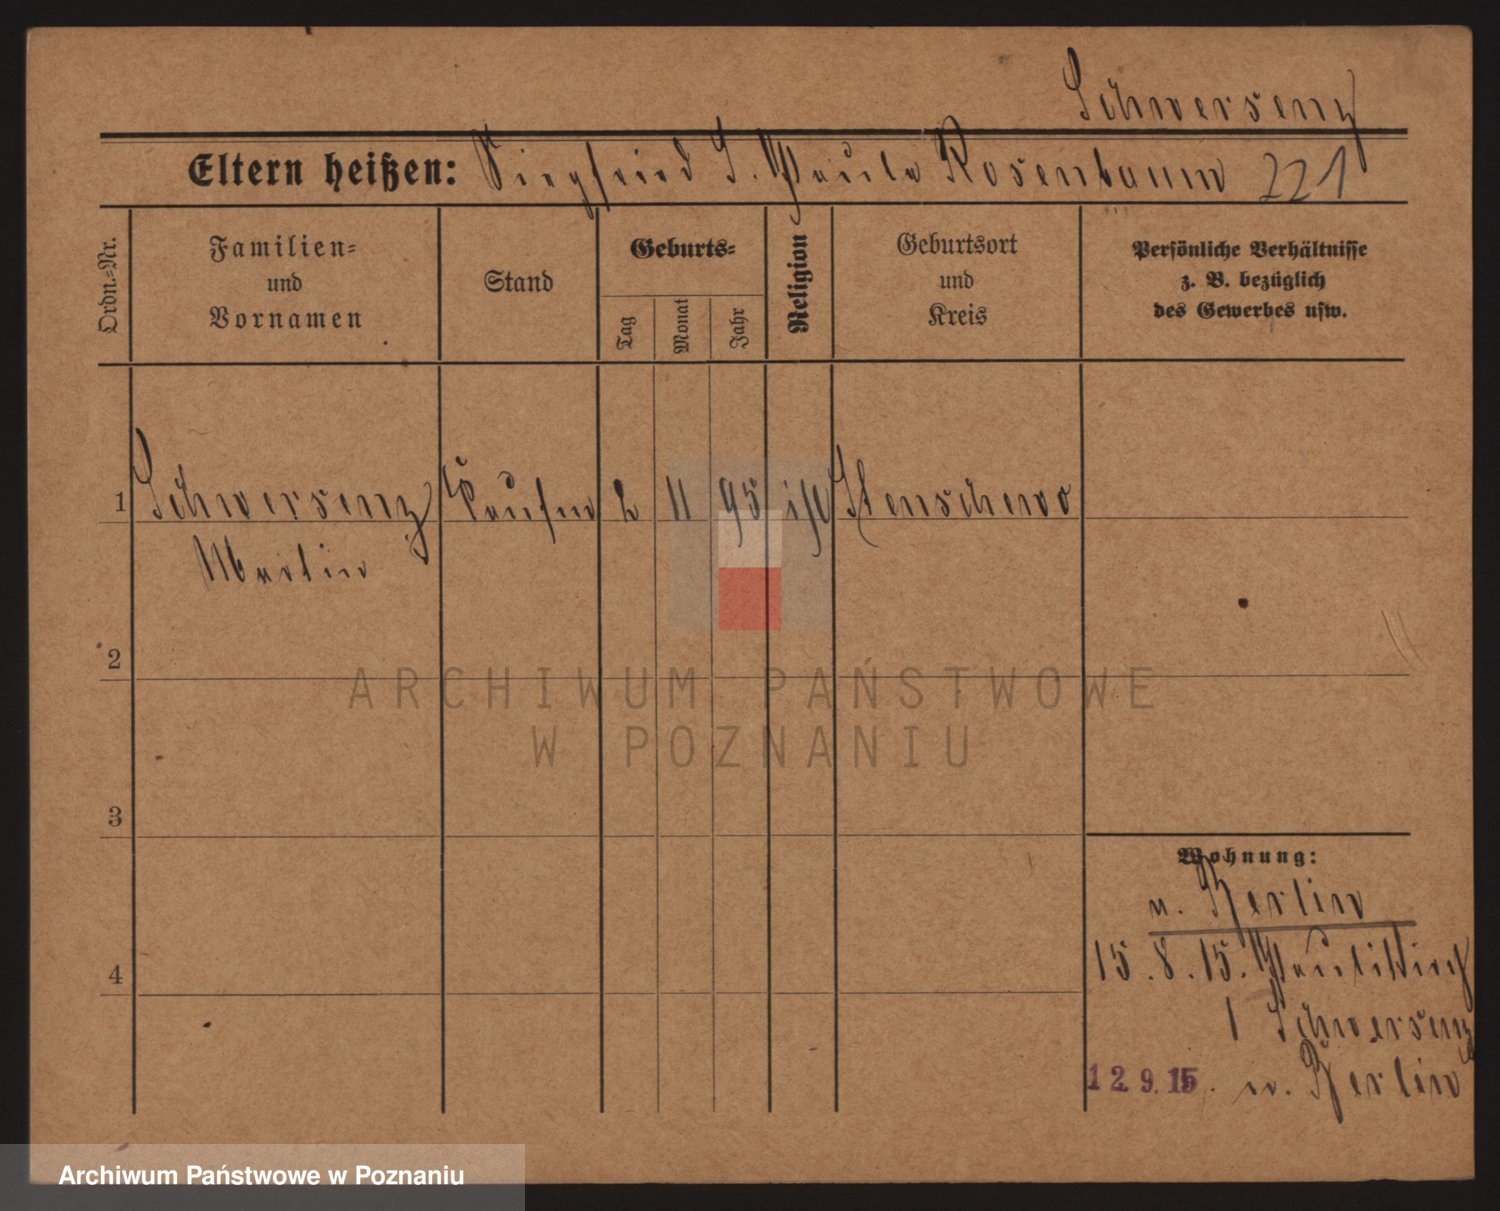 Schwersenz
Eltern heißen: Siegfried S. Paula Rosenbaum 221
Ordn.=Nr.
Familien=
und
Vornamen
Stand
Geburts=
Tag
Monat
Jahr
Religion
Geburtsort
und
Kreis
Persönliche Verhältnisse
z. B. bezüglich
des Gewerbes usw.
1 Schwersenz Kaufm 2 11 95 Stenschewo
Martin
2
3
4
ARCHIWUM PAŃSTWOWE
W POZNANIU
Wohnung:
n. Berlin
15.8.15. Paulikirch
1 Schwersenz
12.9.15. n. Berlin
Archiwum Państwowe w Poznaniu